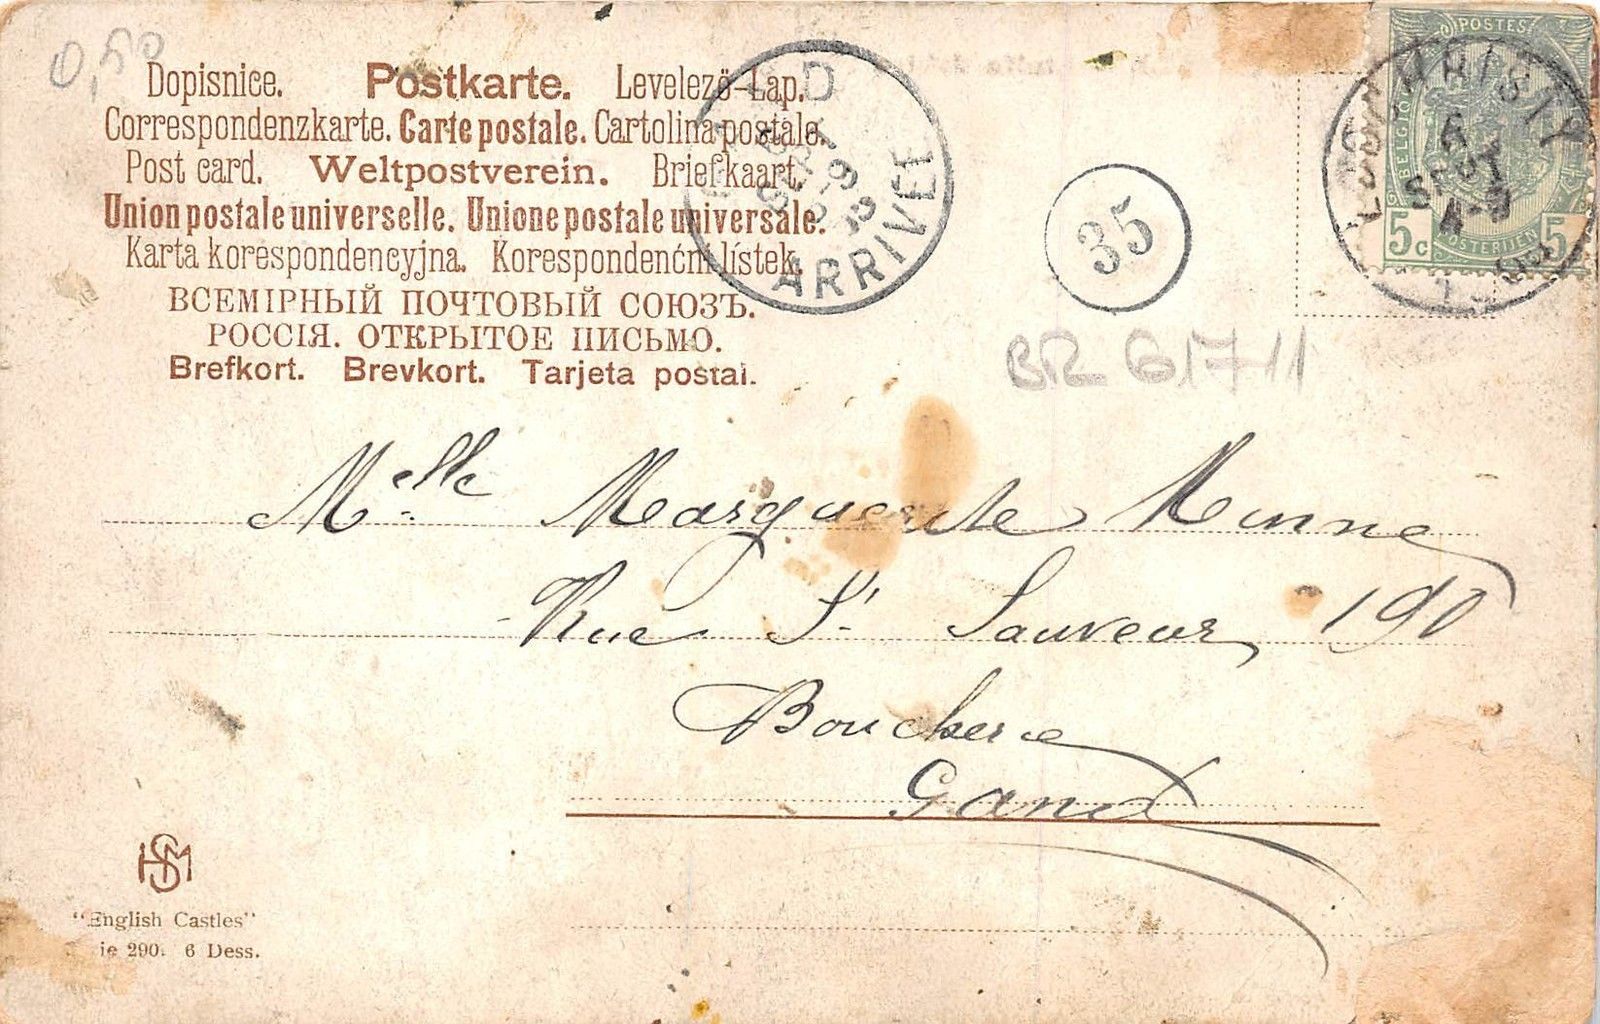 0,50
Dopisnice. Postkarte. Levelező-Lap.
Correspondenzkarte. Carte postale. Cartolina postale.
Post card. Weltpostverein. Briefkaart.
Union postale universelle. Unione postale universale.
Karta korespondencyjna. Korespondenćni lístek.
ВСЕМІРНЫЙ ПОЧТОВЫЙ СОЮЗЪ.
РОССІЯ. ОТКРЫТОЕ ПИСЬМО.
Brefkort. Brevkort. Tarjeta postal.
ARRIVÉE
SEPT
35
POSTES
BELGIQUE
5c 5
POSTERIJEN
6
SEPT
BR 61711
Melle Marguerite Minne
Rue St Sauveur 190
Boucherie
Gand
HSM
"English Castles"
ie 290. 6 Dess.